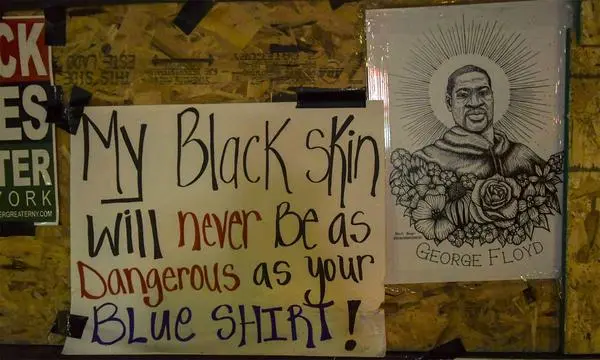 CK
ES
TER
YORK
ERGREATERNY.COM
My Black skin
will never Be as
Dangerous as your
BLUE SHIRT!
GEORGE FLOYD